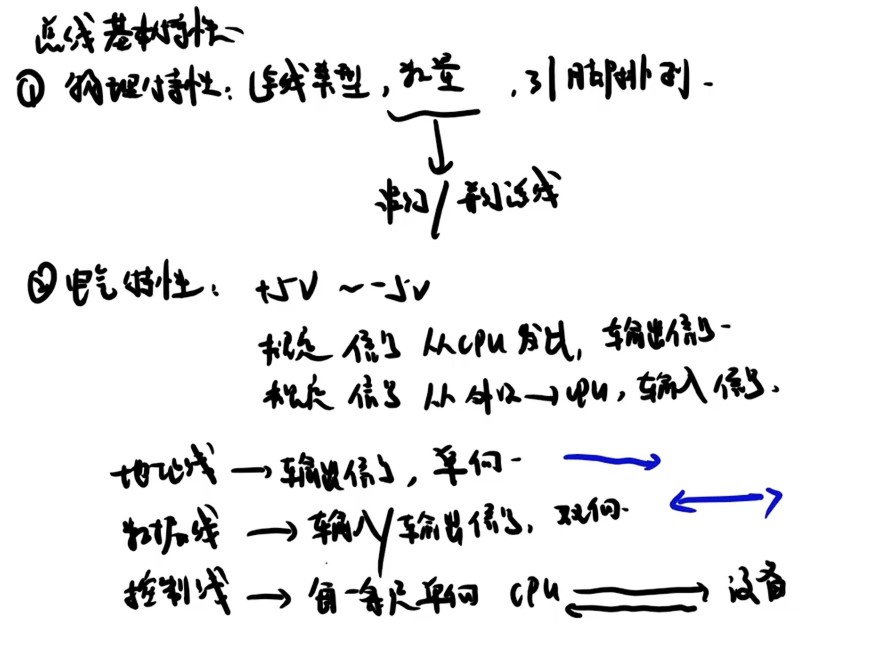 总线基本特性
① 物理特性：连线类型，数量，引脚排列.
串行/并行连线
② 电气特性： +5V ~ -5V
规定 信号 从CPU发出，输出信号.
规定 信号 从外设→CPU，输入信号.
地址线→输出信号，单向.
数据线→输入/输出信号，双向.
控制线→每一条是单向 CPU 设备